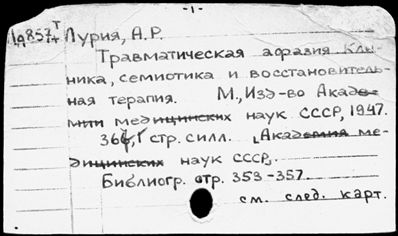 -1-
1д857т Лурия, А.Р.
Травматическая афазия Клы-
ника, семиотика и восстановитель-
ная терапия. М., Изд-во Акаде-
мии медицинских наук СССР, 1947.
стр. силл. Академия ме-
дицинских наук СССР,.
Библиогр. стр. 353-357.
см. след. карт.